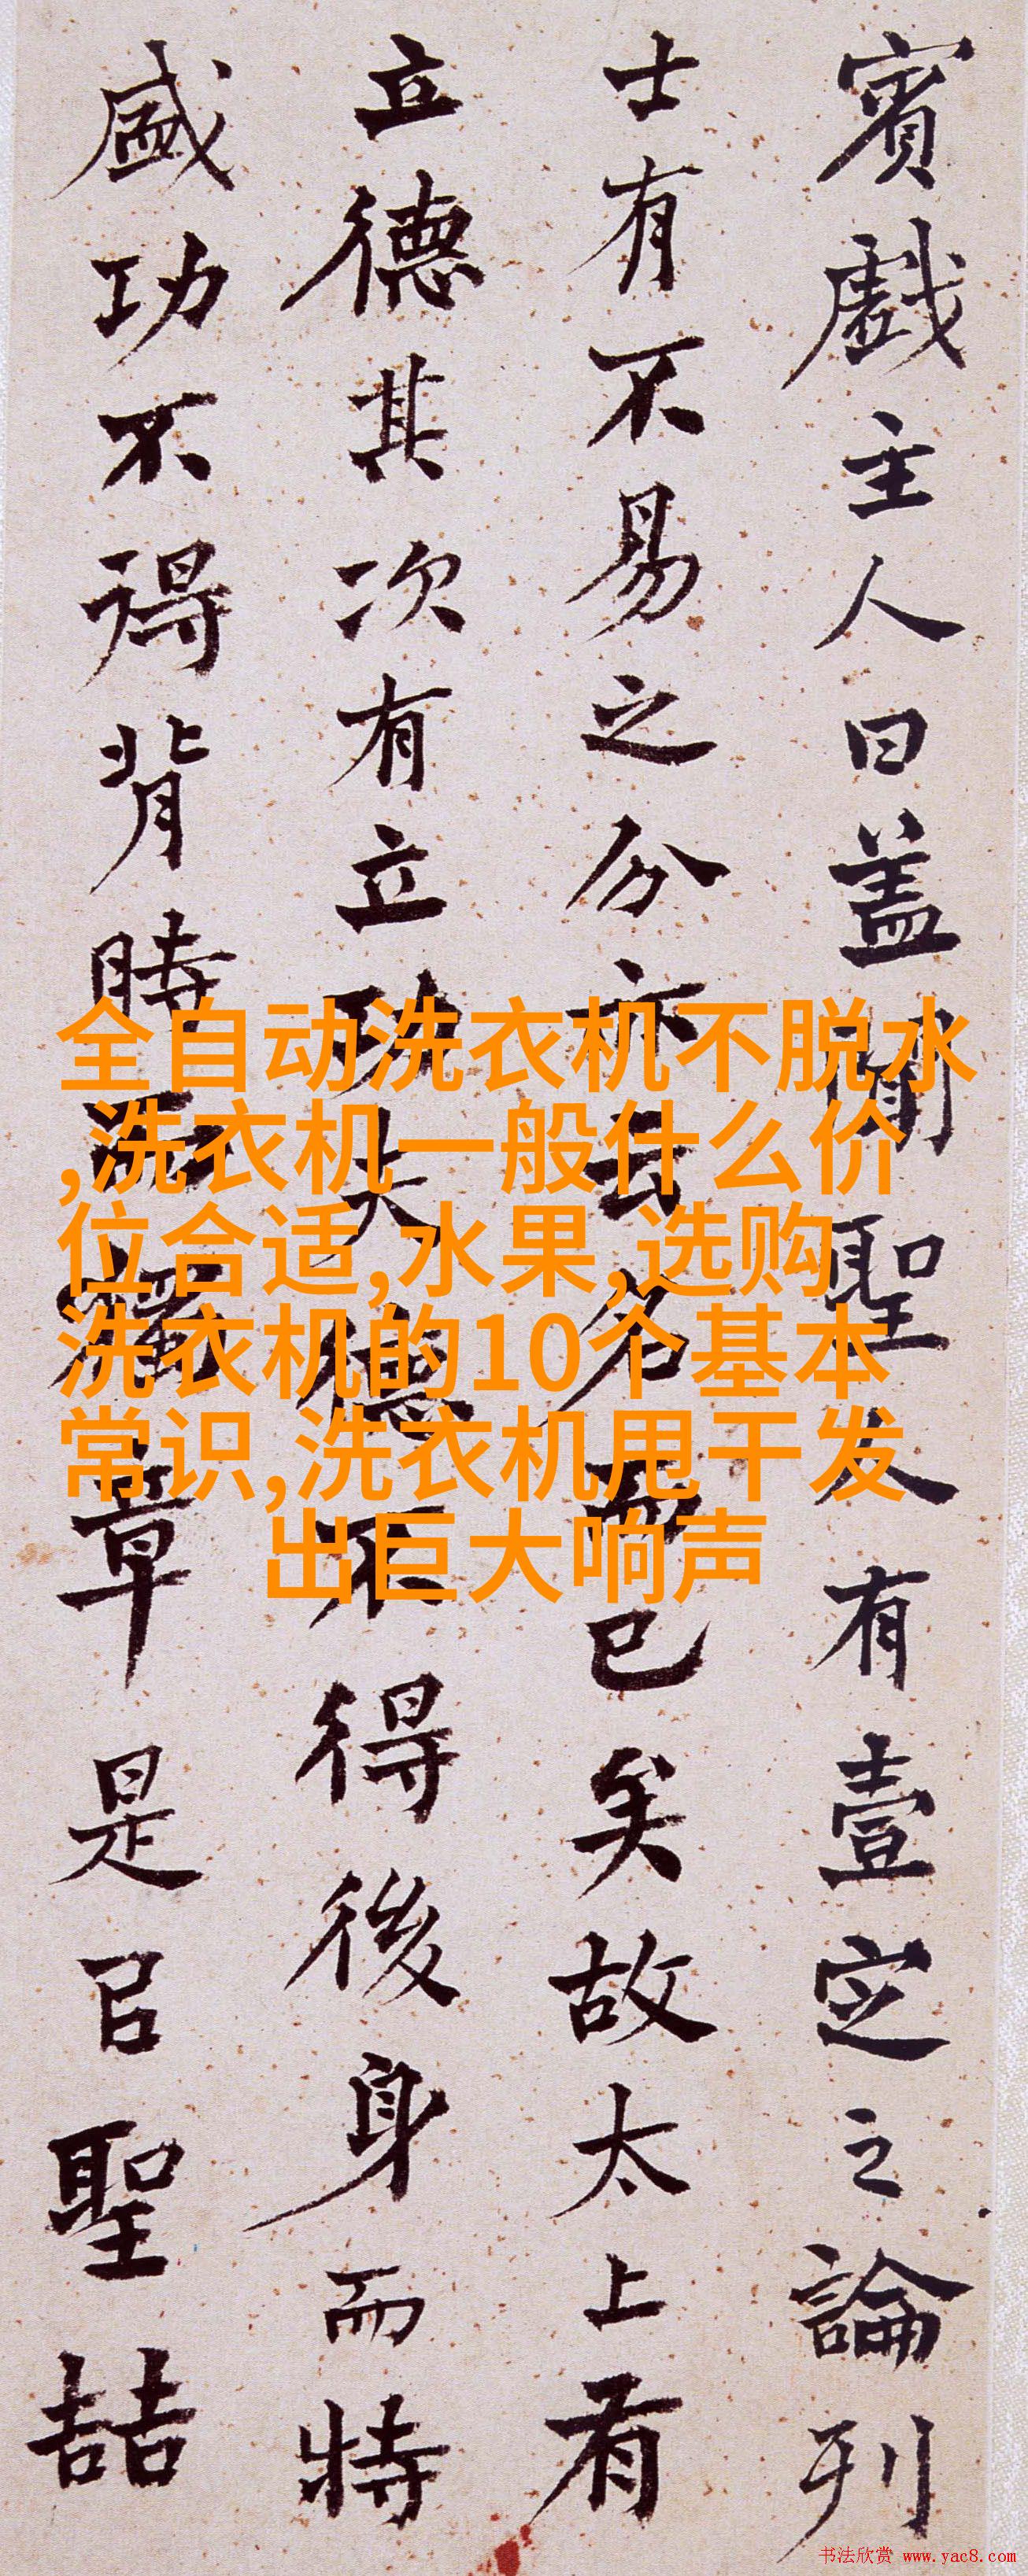 賓戲主人曰蓋聞聖人有壹定之論列
士有不易之分亦云名而已矣故太上有
立德其次有立功夫德不得後身而特
盛功不得背時而獨章是以聖喆
全自动洗衣机不脱水
,洗衣机一般什么价
位合适,水果,选购
洗衣机的10个基本
常识,洗衣机甩干发
出巨大响声
书法欣赏 www.yac8.com